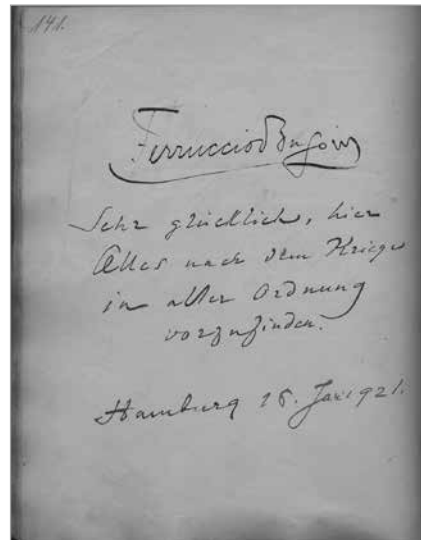 141.
Ferruccio Busoni
Sehr glücklich, hier
Alles nach dem Kriege
in alter Ordnung
vorzufinden.
Hamburg Jan 1921.